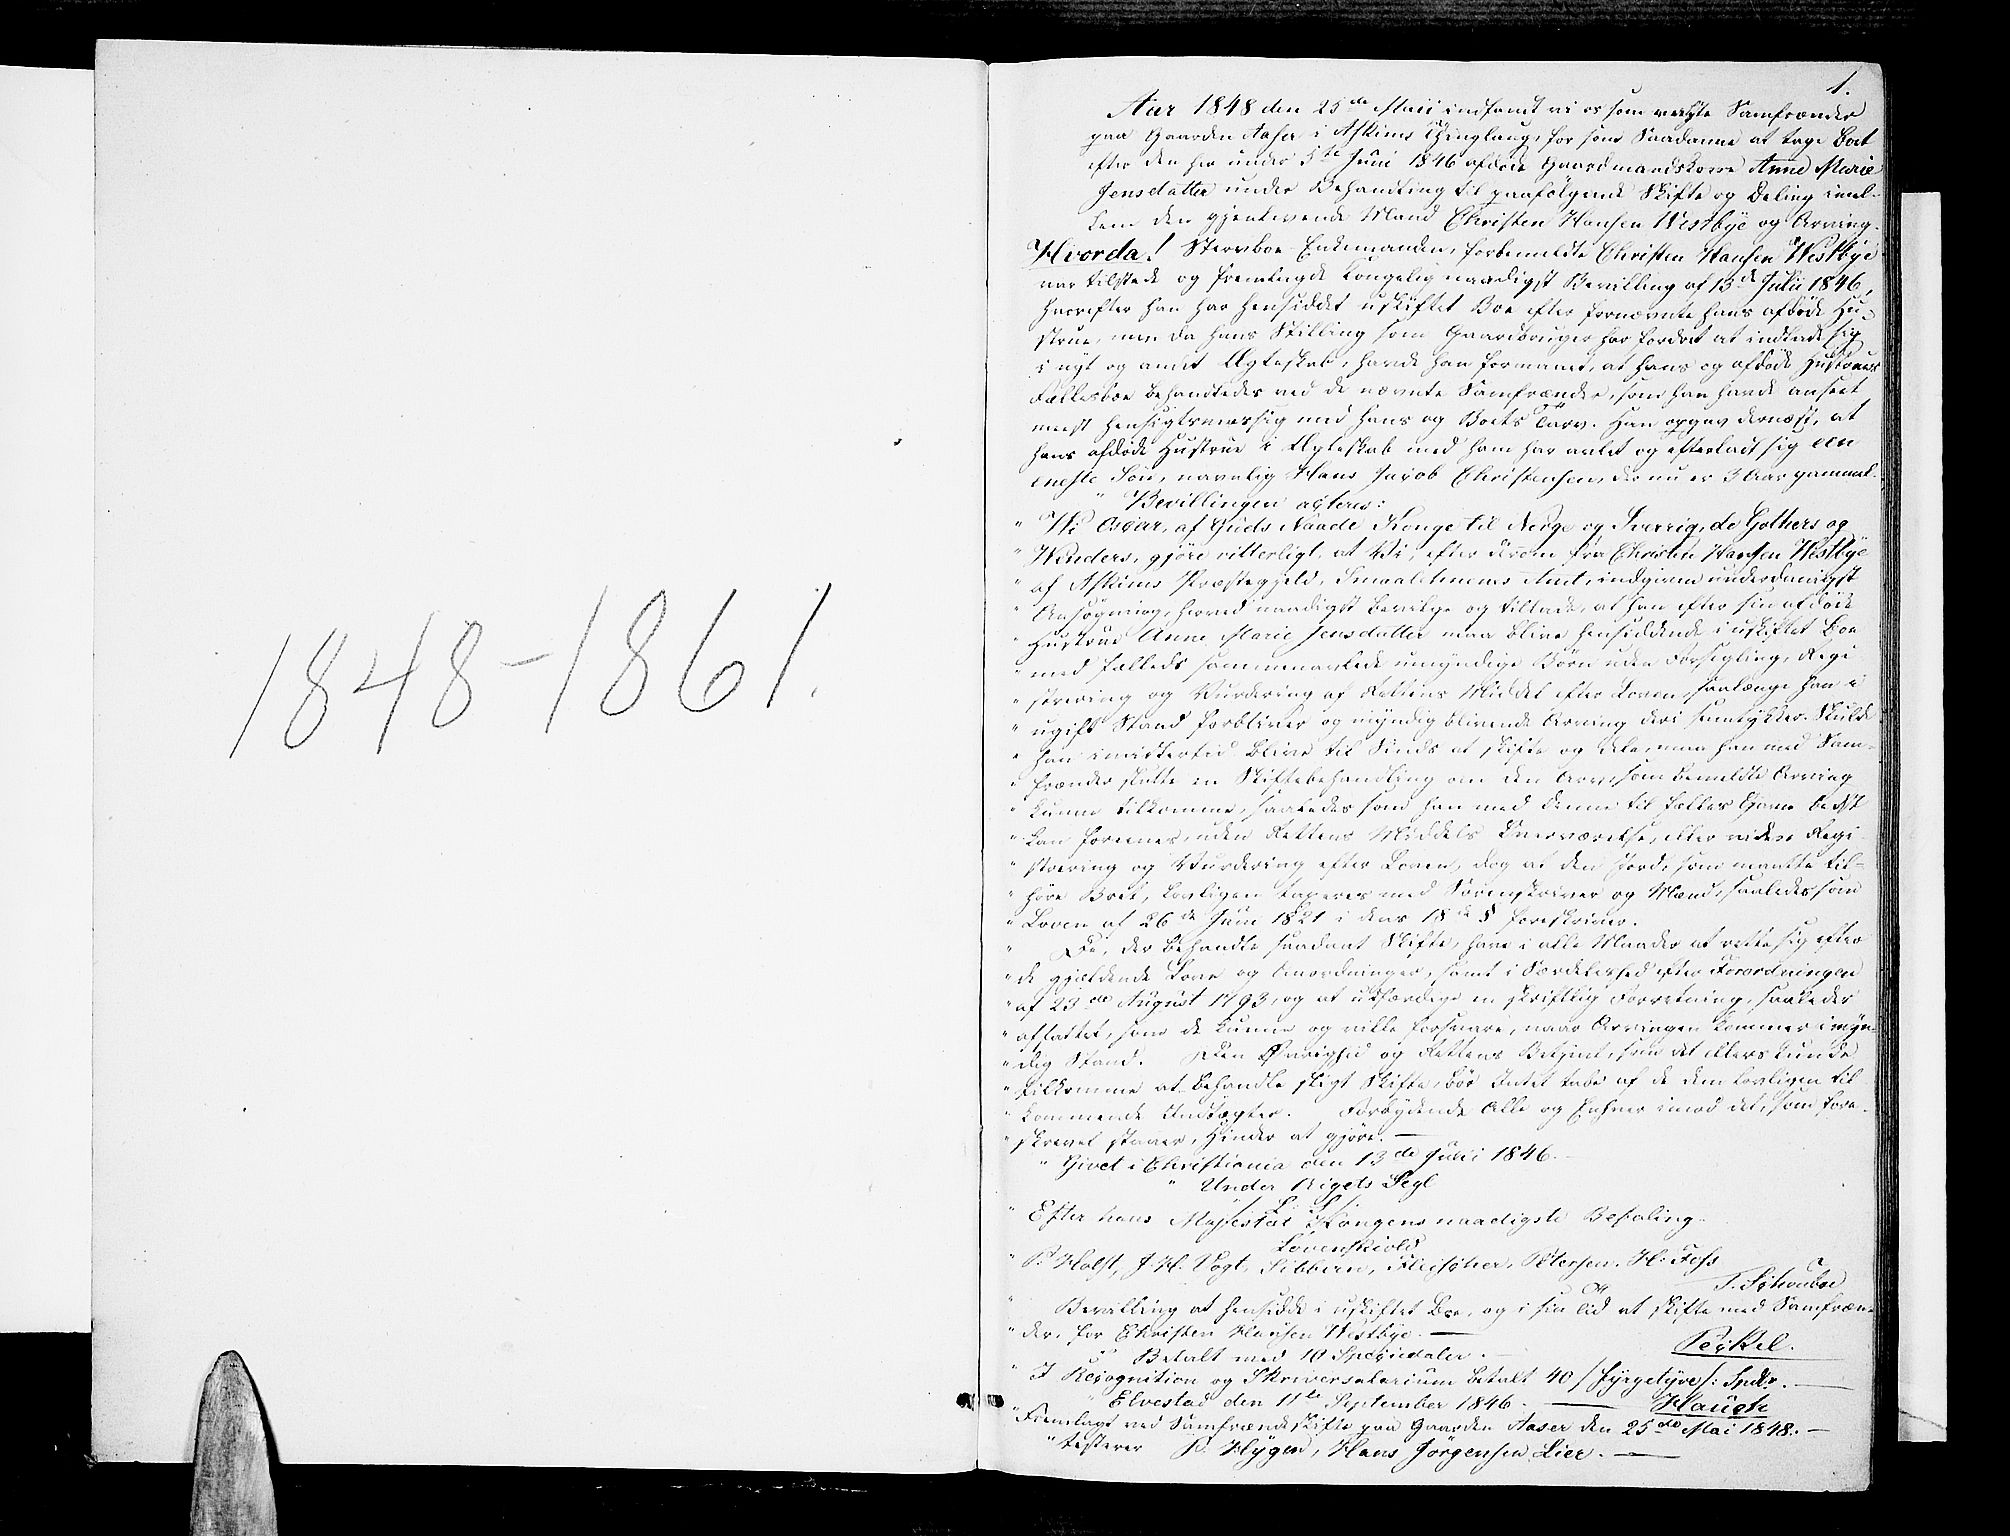 1848-1861.
1.
Aar 1848 den 25de Maii indfandt vi os som valgte Samfrænder
paa Gaarden Aaser i Askims Thinglaug, for som Saadanne at tage Boet
efter den her under 5te Juni 1846 afdøde Gaardmandskone Anne Marie
Jensdatter under Behandling til paafølgende Skifte og Deling imel-
lem den gjenlevende Mand Christen Hansen Westbye og Arving.
Hvorda! Stervboe Enkemanden, forbemeldte Christen Hansen Westbye
var tilstede og fremlagde Kongelig naadigst Bevilling af 13de Julii 1846,
hvorefter han har hensiddet i uskiftet Boe efter fornævnte hans afdøde Hu-
strue, men da hans Stilling som Gaardbruger har fordret at indlade sig
i nyt og andet Ægteskab, havde han formanet, at hans og afdøde Hustrues
Fællesboe behandledes ved de nævnte Samfrænder, som han havde anseet
meest hensigtsmæssig med hans og Boets Tarv. Han opgav dernæst, at
hans afdøde Hustrue i Ægteskab med ham har avlet og efterladt sig een
eneste Søn, navnlig Hans Jacob Christensen, der nu er 3 Aar gammel.
" Bevillingen acteres:
" Vi Oscar, af Guds Naade Konge til Norge og Sverrig, de Gothers og
" Wenders, gjøre vitterligt, at Vi, efter derom fra Christen Hansen Westbye
" af Askims Præstegjeld, Smaalehnenes Amt, indgiven underdanigst
" Ansøgning, herved naadigst bevilge og tillade, at han efter sin afdøde
" Hustrue Anne Marie Jensdatter maa blive hensiddende i uskiftet Boe
" med fælleds sammenavlede umyndige Børn uden Forsigling, Regi-
" strering og Vurdering af Rettens Middel efter Loven, saalænge han i
" ugift Stand forbliver og myndig blivende Arving deri samtykker. Skulde
" han imidlertid blive til Sinds at skifte og dele, maa han med Sam-
" frænder slutte en Skiftebehandling om den Arv som bemeldte Arving
" kunne tilkomme, saaledes som han med denne til fælles Gavn bedst
" kan forenes, uden Rettens Middels Nærværelse, eller videre Regi-
" strering og Vurdering efter Loven, dog at den Jord, som maatte til-
" høre Boet, lovligen taxeres med Sorenskriver og Mænd, saaledes som
" Loven af 26de Juni 1821 i dens 18de § foreskriver.
" De, der behandle saadant Skifte, have i alle Maader at rette sig efter
" de gjældende Love og Anordninger, samt i Særdeleshed efter Forordningen
" af 23de August 1793, og at udfærdige en skriftlig Forretning, saaledes
" affattet, som de kunne og ville forsvare, naar Arvingen kommer i myn-
" dig Stand. Den Øvrighed og Rettens Betjent, som det ellers kunde
" tilkomme at behandle sligt Skifte, bør Intet tabe af de dem lovligen til-
" kommende Indtægter. Forbydende Alle og Enhver imod det, som fore-
" skrevet staaer, Hinder at gjøre. —
" Givet i Christiania den 13de Julii 1846. —
" Under Rigets Segl
L. S.
" Efter hans Majestæt Kongens naadigste Befaling.
Løvenskiold
" P. Holst, J. H. Vogt, Sibbern, Fleischer, Petersen, H: Foss
T. Schouboe
" Bevilling at hensidde i uskiftet Boe, og i sin Tid at skifte med Samfræn-
" der, for Christen Hansen Westbye. —
Peckel.
" Betalt med 10 Speciedaler. —
" I Recognition og Skriversalarium betalt 40 /: fyrgetyve :/ Skil. —
" Elvestad den 11te September 1846. — Hauch
" Fremlagt ved Samfrændeskifte paa Gaarden Aaser den 25de Mai 1848. —
" testerer P. Hygen, Hans Jørgensen Lier. —